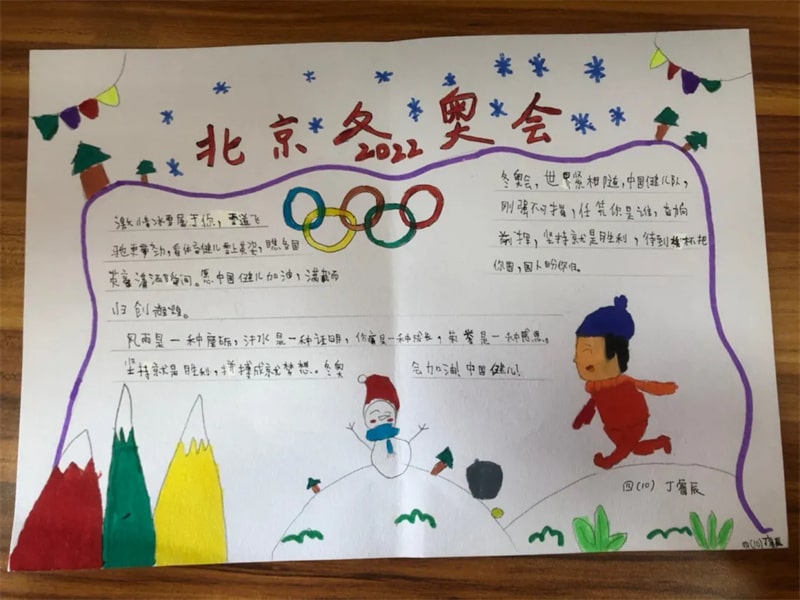 北京冬奥会
2022
激情冰雪属于你，雪道飞
驰更事动，看体育健儿雪上英姿，瞧各国
英豪潇洒瞬间。愿中国健儿加油，满载而
归创辉煌。
风雨是一种磨砺，汗水是一种证明，伤痛是一种成长，荣誉是一种感恩。
坚持就是胜利，拼搏成就梦想。冬奥
会加油！中国健儿！
冬奥会，世界紧相随，中国健儿队，
刚强不可摧，任凭你是谁，自向
前挥，坚持就是胜利，待到捧杯把
你回，国人盼你归。
四(10) 丁睿辰
四(10)